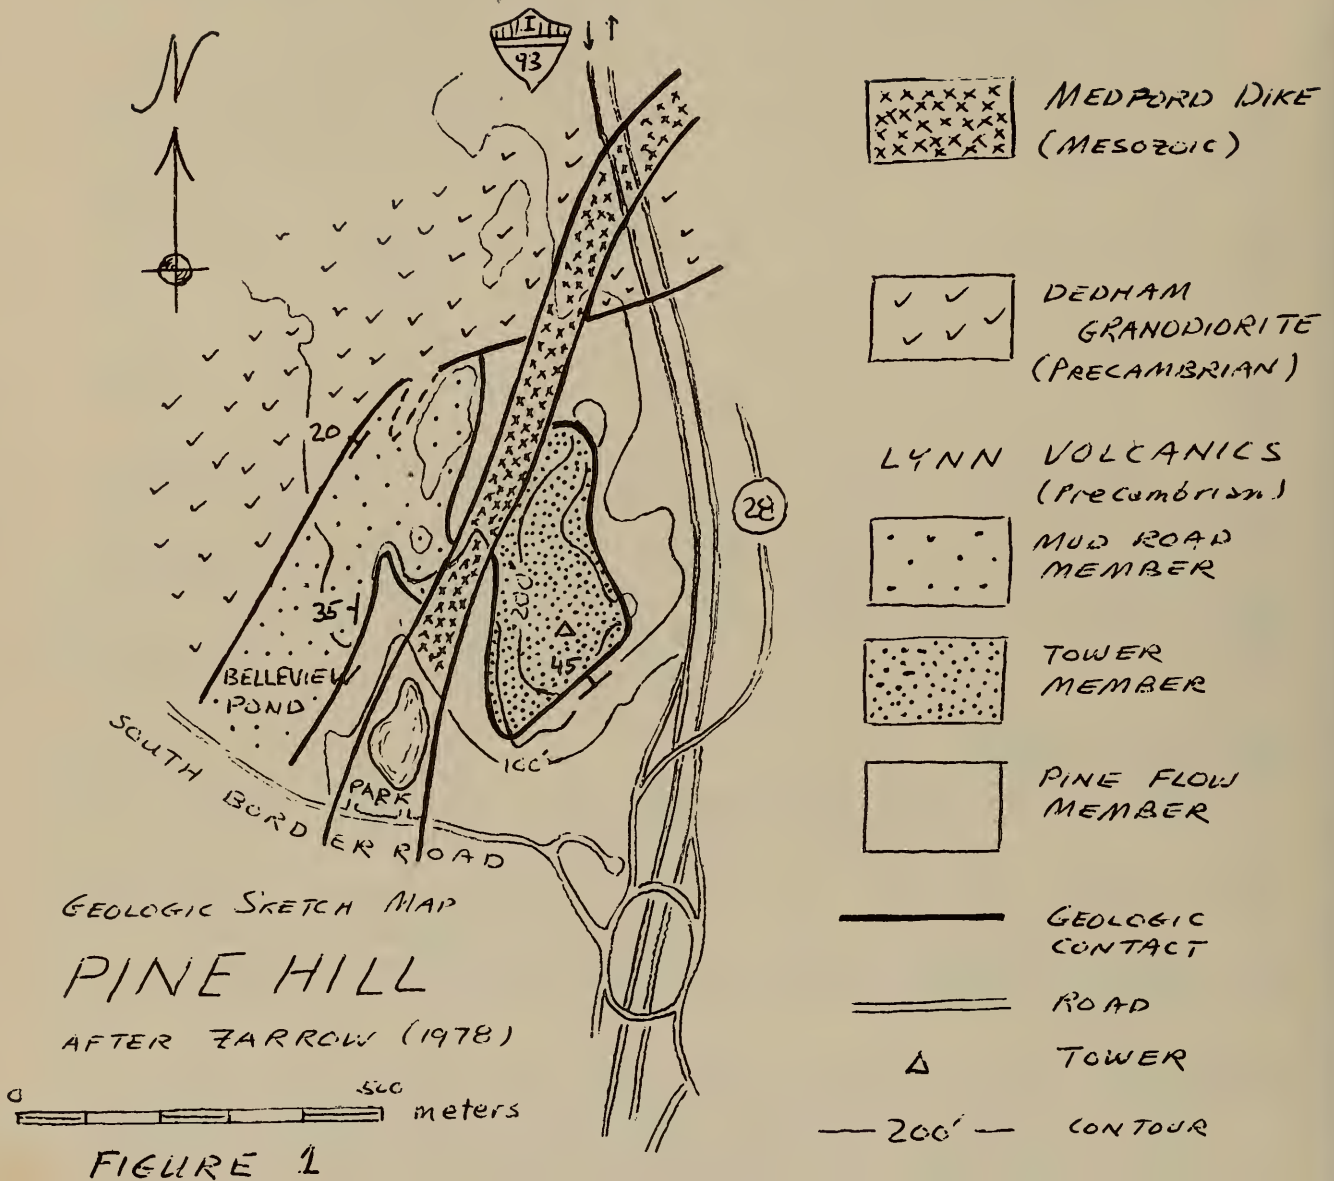 N
I
93
28
20
35
200
45
100'
BELLEVIEW
POND
PARK
SOUTH BORDER ROAD
GEOLOGIC SKETCH MAP
PINE HILL
AFTER ZARROW (1978)
0 500 meters
FIGURE 1
MEDFORD DIKE
(MESOZOIC)
DEDHAM
GRANODIORITE
(PRECAMBRIAN)
LYNN VOLCANICS
(Precambrian)
MUD ROAD
MEMBER
TOWER
MEMBER
PINE FLOW
MEMBER
GEOLOGIC
CONTACT
ROAD
TOWER
200' CONTOUR